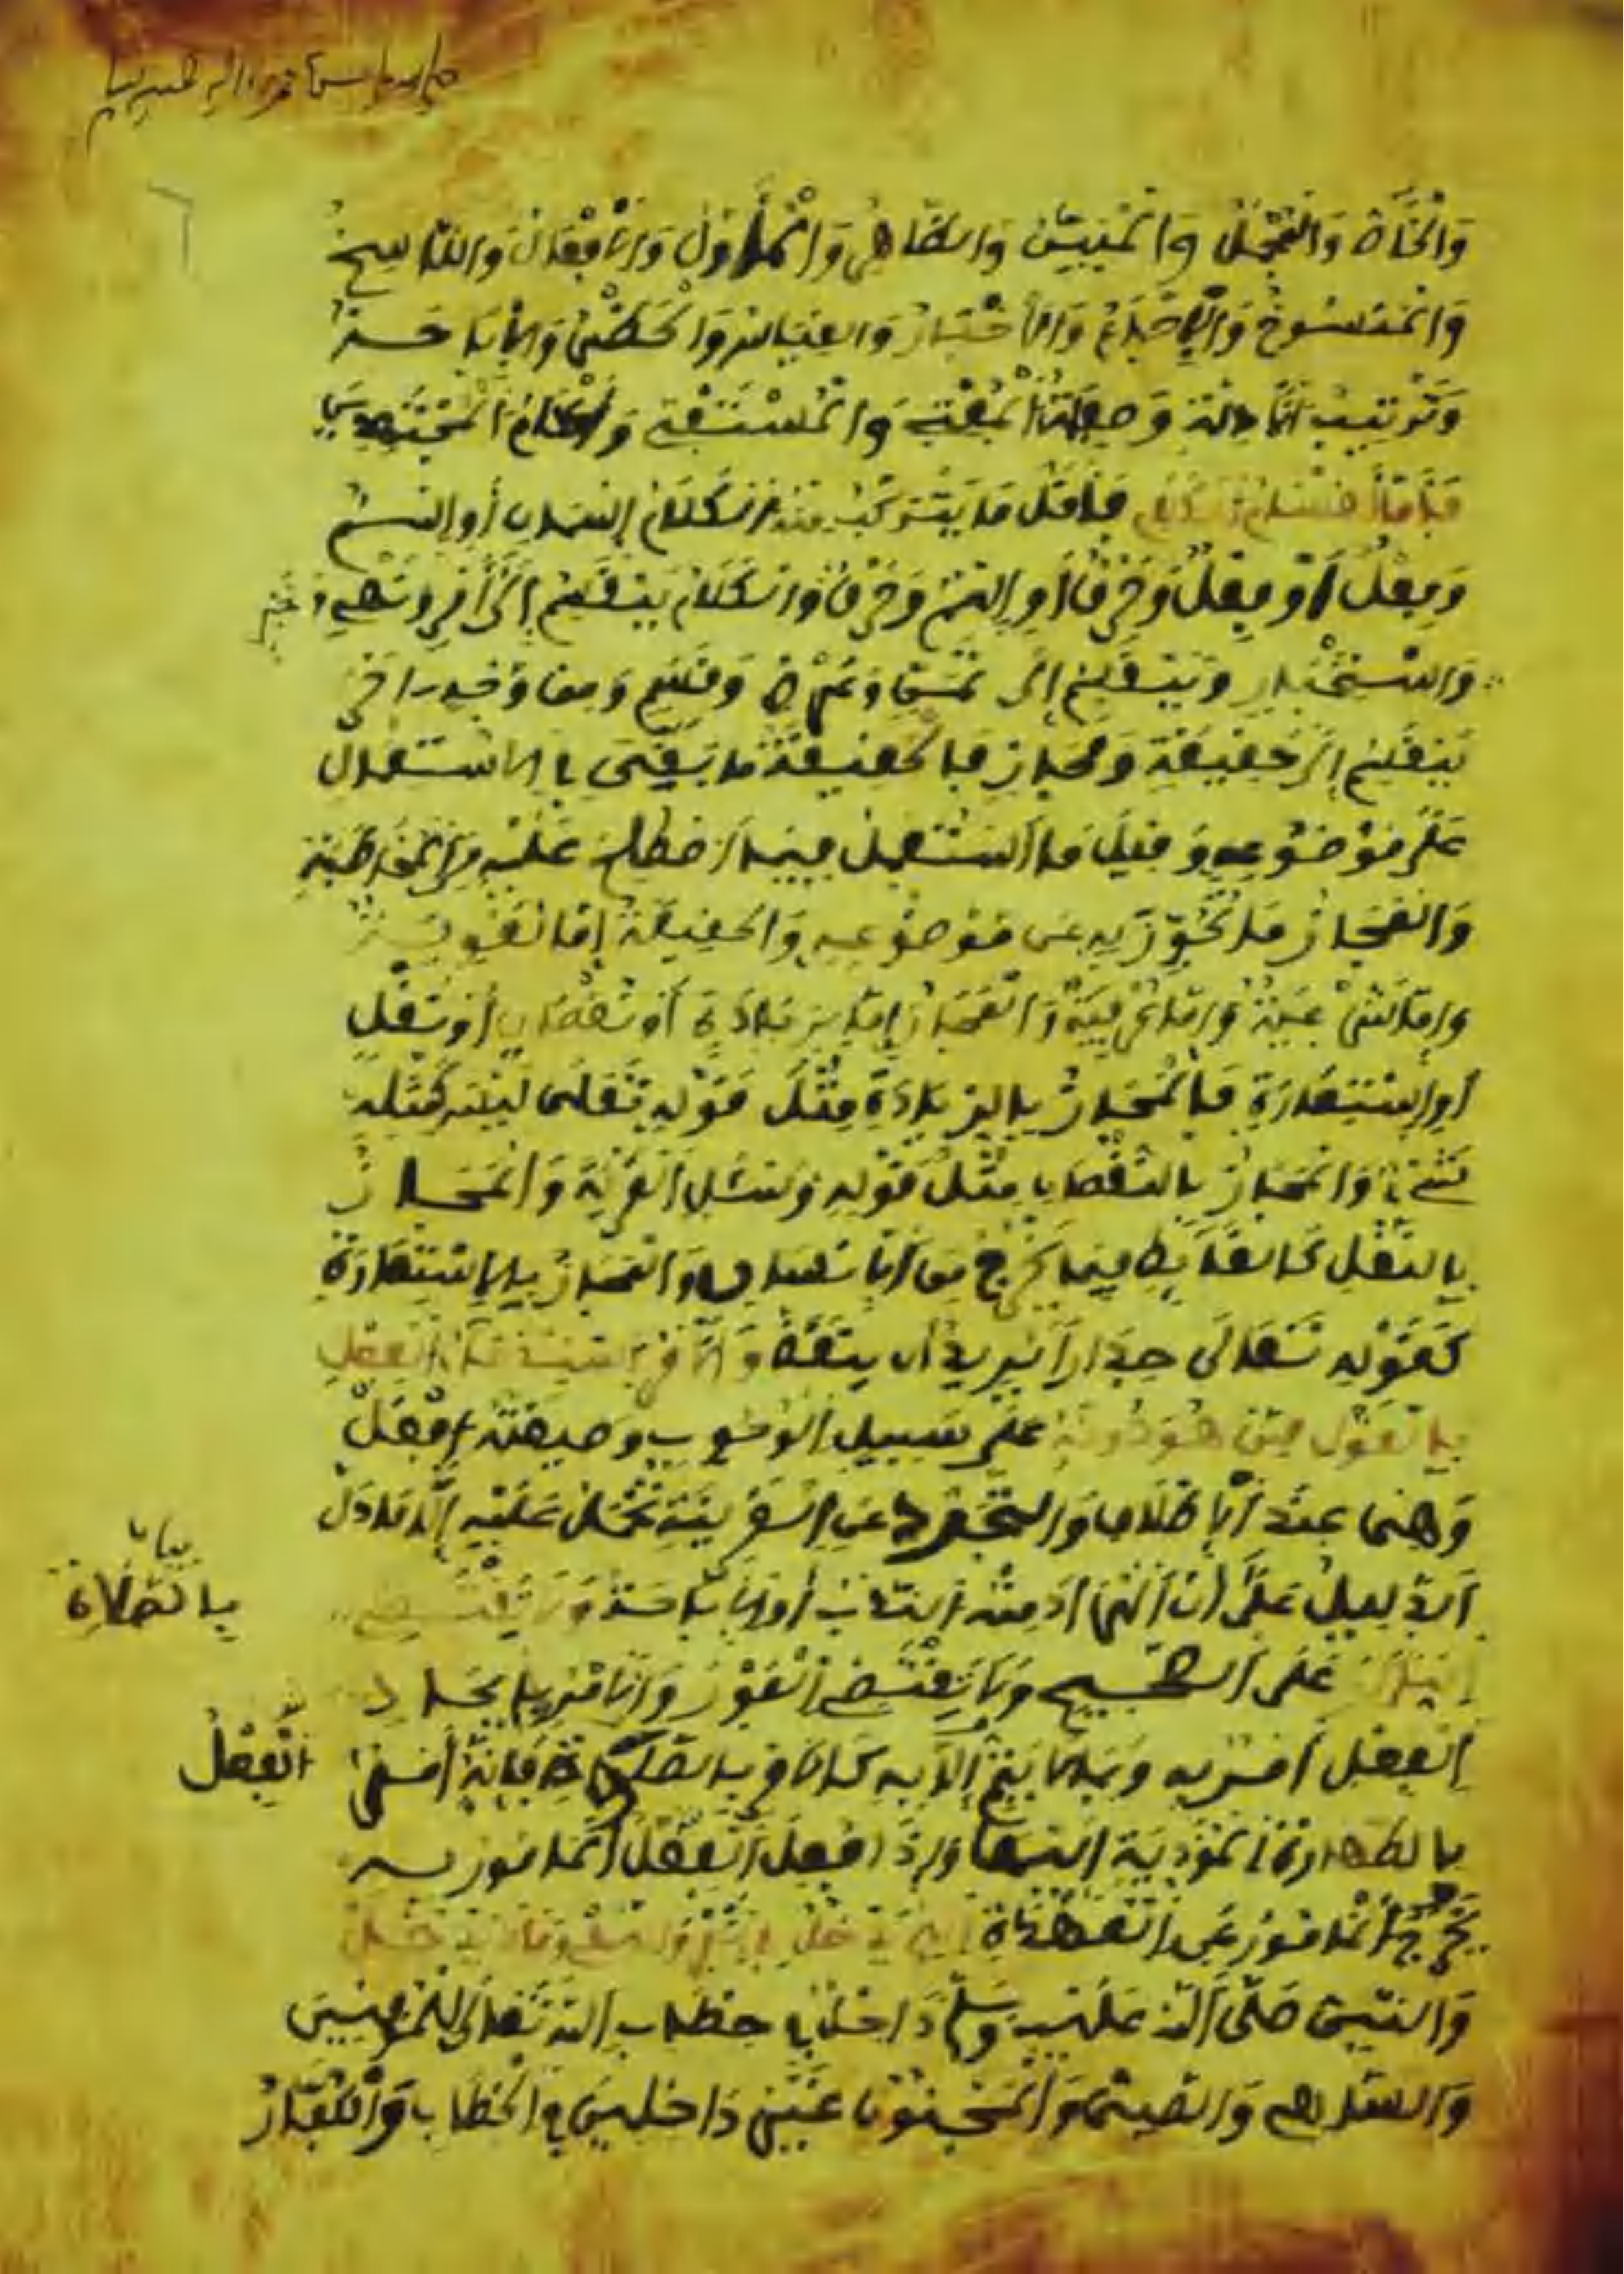 وَالْخَاصُّ وَالْمُجْمَلُ وَالْمُبَيَّنُ وَالظَّاهِرُ وَالْمُأَوَّلُ وَالْأَفْعَالُ وَالنَّاسِخُ
وَالْمَنْسُوخُ وَالْإِجْمَاعُ وَالْأَخْبَارُ وَالْقِيَاسُ وَالْحَظْرُ وَالْإِبَاحَةُ
وَتَرْتِيبُ الْأَدِلَّةِ وَصِفَةُ الْمُفْتِي وَالْمُسْتَفْتِي وَأَحْكَامُ الْمُجْتَهِدِينَ
فَأَمَّا أَقْسَامُ الْكَلَامِ فَأَقَلُّ مَا يَتَرَكَّبُ مِنْهُ الْكَلَامُ اِسْمَانِ أَوِ اِسْمٌ
وَفِعْلٌ أَوْ فِعْلٌ وَحَرْفٌ أَوِ اِسْمٌ وَحَرْفٌ وَالْكَلَامُ يَنْقَسِمُ إِلَى أَمْرٍ وَنَهْيٍ وَخَبَرٍ
وَاسْتِخْبَارٍ وَيَنْقَسِمُ إِلَى تَمَنٍّ وَعَرْضٍ وَقَسَمٍ وَمِنْ وَجْهٍ اخَرَ
يَنْقَسِمُ إِلَى حَقِيقَةٍ وَمَجَازٍ فَالْحَقِيقَةُ مَا بَقِيَ بِالِاسْتِعْمَالِ
عَلَى مَوْضُوعِهِ وَقِيلَ مَا اسْتُعْمِلَ فِيمَا اصْطُلِحَ عَلَيْهِ مِنَ الْمُخَاطَبَةِ
وَالْمَجَازُ مَا تُجُوِّزَ بِهِ عَنْ مَوْضُوعِهِ وَالْحَقِيقَةُ إِمَّا لُغَوِيَّةٌ
وَإِمَّا شَرْعِيَّةٌ وَإِمَّا عُرْفِيَّةٌ وَالْمَجَازُ إِمَّا بِزِيَادَةٍ أَوْ نُقْصَانٍ أَوْ نَقْلٍ
أَوِ اسْتِعَارَةٍ فَالْمَجَازُ بِالزِّيَادَةِ مِثْلُ قَوْلِهِ تَعَالَى لَيْسَ كَمِثْلِهِ
شَيْءٌ وَالْمَجَازُ بِالنُّقْصَانِ مِثْلُ قَوْلِهِ وَسْئَلِ الْقَرْيَةَ وَالْمَجَازُ
بِالنَّقْلِ كَالْغَائِطِ فِيمَا يَخْرُجُ مِنَ الْإِنْسَانِ وَالْمَجَازُ بِالْاِسْتِعَارَةِ
كَقَوْلِهِ تَعَالَى جِدَارًا يُرِيدُ أَنْ يَنْقَضَّ وَالْأَمْرُ اسْتِدْعَاءُ الْفِعْلِ
بِالْقَوْلِ مِمَّنْ هُوَ دُونَهُ عَلَى سَبِيلِ الْوُجُوبِ وَصِيغَتُهُ اِفْعَلْ
وَهِيَ عِنْدَ الْإِطْلَاقِ وَالتَّجَرُّدِ عَنِ الْقَرِينَةِ تُحْمَلُ عَلَيْهِ إِلَّا مَا دَلَّ
الدَّلِيلُ عَلَى أَنَّ الْمُرَادَ مِنْهُ النَّدْبُ أَوِ الْإِبَاحَةُ وَلَا يَقْتَضِي
عَلَى الصَّحِيحِ وَلَا يَقْتَضِي الْفَوْرَ وَالْأَمْرُ بِإِيجَادِ
الْفِعْلِ أَمْرٌ بِهِ وَبِمَا لَا يَتِمُّ إِلَّا بِهِ كَالْأَمْرِ بِالصَّلَاةِ فَإِنَّهُ أَمْرٌ
بِالطَّهَارَةِ الْمُؤَدِّيَةِ إِلَيْهَا وَإِذَا فُعِلَ الْفِعْلُ الْمَامُورُ بِهِ
يَخْرُجُ الْمَامُورُ عَنِ الْعُهْدَةِ
وَالنَّبِيُّ صَلَّى اللَّهُ عَلَيْهِ وَسَلَّمَ دَاخِلٌ خِطَابِ اللَّهِ تَعَالَى لِلْمُومِنِينَ
وَالسَّاهِي وَالصَّبِيُّ وَالْمَجْنُونُ غَيْرُ دَاخِلِينَ فِي الْخِطَابِ وَالْكُفَّارُ
بيان
بِالصَّلَاةِ
الْفِعْلُ